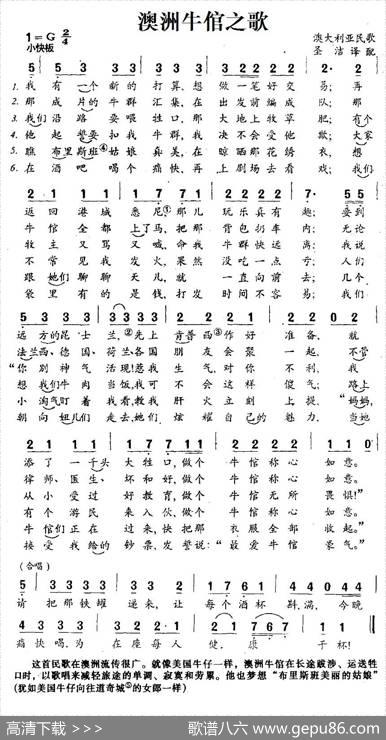 澳洲牛倌之歌
1=G 2/4
小快板
澳大利亚民歌
圣洁译配
5 5 3 3 3 3 3 3 3 2 2 2 2·
1.我有一个新的打算,想做一笔好交易;再
2.那成片的牛群汇集,在出发前编成队;那
3.我们沿路要喂牲口,那大地上牧草肥;有个
4.他起誓要扣我牛群,我决不会受他欺;大家
5.瞧布里斯班④姑娘真美,在晾晒那花绣衣,想
6.在酒吧喝个痛快,再上剧场去看戏;我们
返回港城悉尼①那儿玩乐真有趣;要到
牛倌全都上了马,把那背包扔车内;无论
牧主又骂又喊,命我牛群快远离;我说
不常见我发火,果然没吃一点亏;人们
跟她们聊聊天儿,就一直向前去;几个
袋里有的是钱,打发时间不容易;我们
远方的昆士兰,②先上肯普西③作好准备,就
法兰西、德国、荷兰各国朋友会聚一起,不管
“你别神气活现!惹我生气,对你不利,我
想我们牛肉当饭,我可不会这样傻气;路上
小淘气盯着我看,教我肝火立刻上提,“妈妈,
朝向妞儿们走去,她们炫耀自己的魅力,当她
添了一千头大牲口,做个牛倌称心如意。
律师、医生、坏和好,做个牛倌称心如意。
从小受过好教育,做个牛倌无所畏惧!”
有个游民来入伙、做个牛倌称心如意。
牛倌们正在过来,快把那衣服全部收起。”
接受我给的钞票,发誓说:“最爱牛倌豪气。”
(合唱)
请把那铁罐递来,让每个酒杯斟满,今晚
痛快喝,为在座每人健康干杯!
这首民歌在澳洲流传很广。就像美国牛仔一样,澳洲牛倌在长途跋涉、运送牲
口时,以歌唱来减轻旅途的单调、寂寞和劳累。他也梦想“布里斯班美丽的姑娘”
(犹如美国牛仔向往道奇城⑤的女郎一样)
高清下载 >>> 歌谱八六 www.gepu86.com